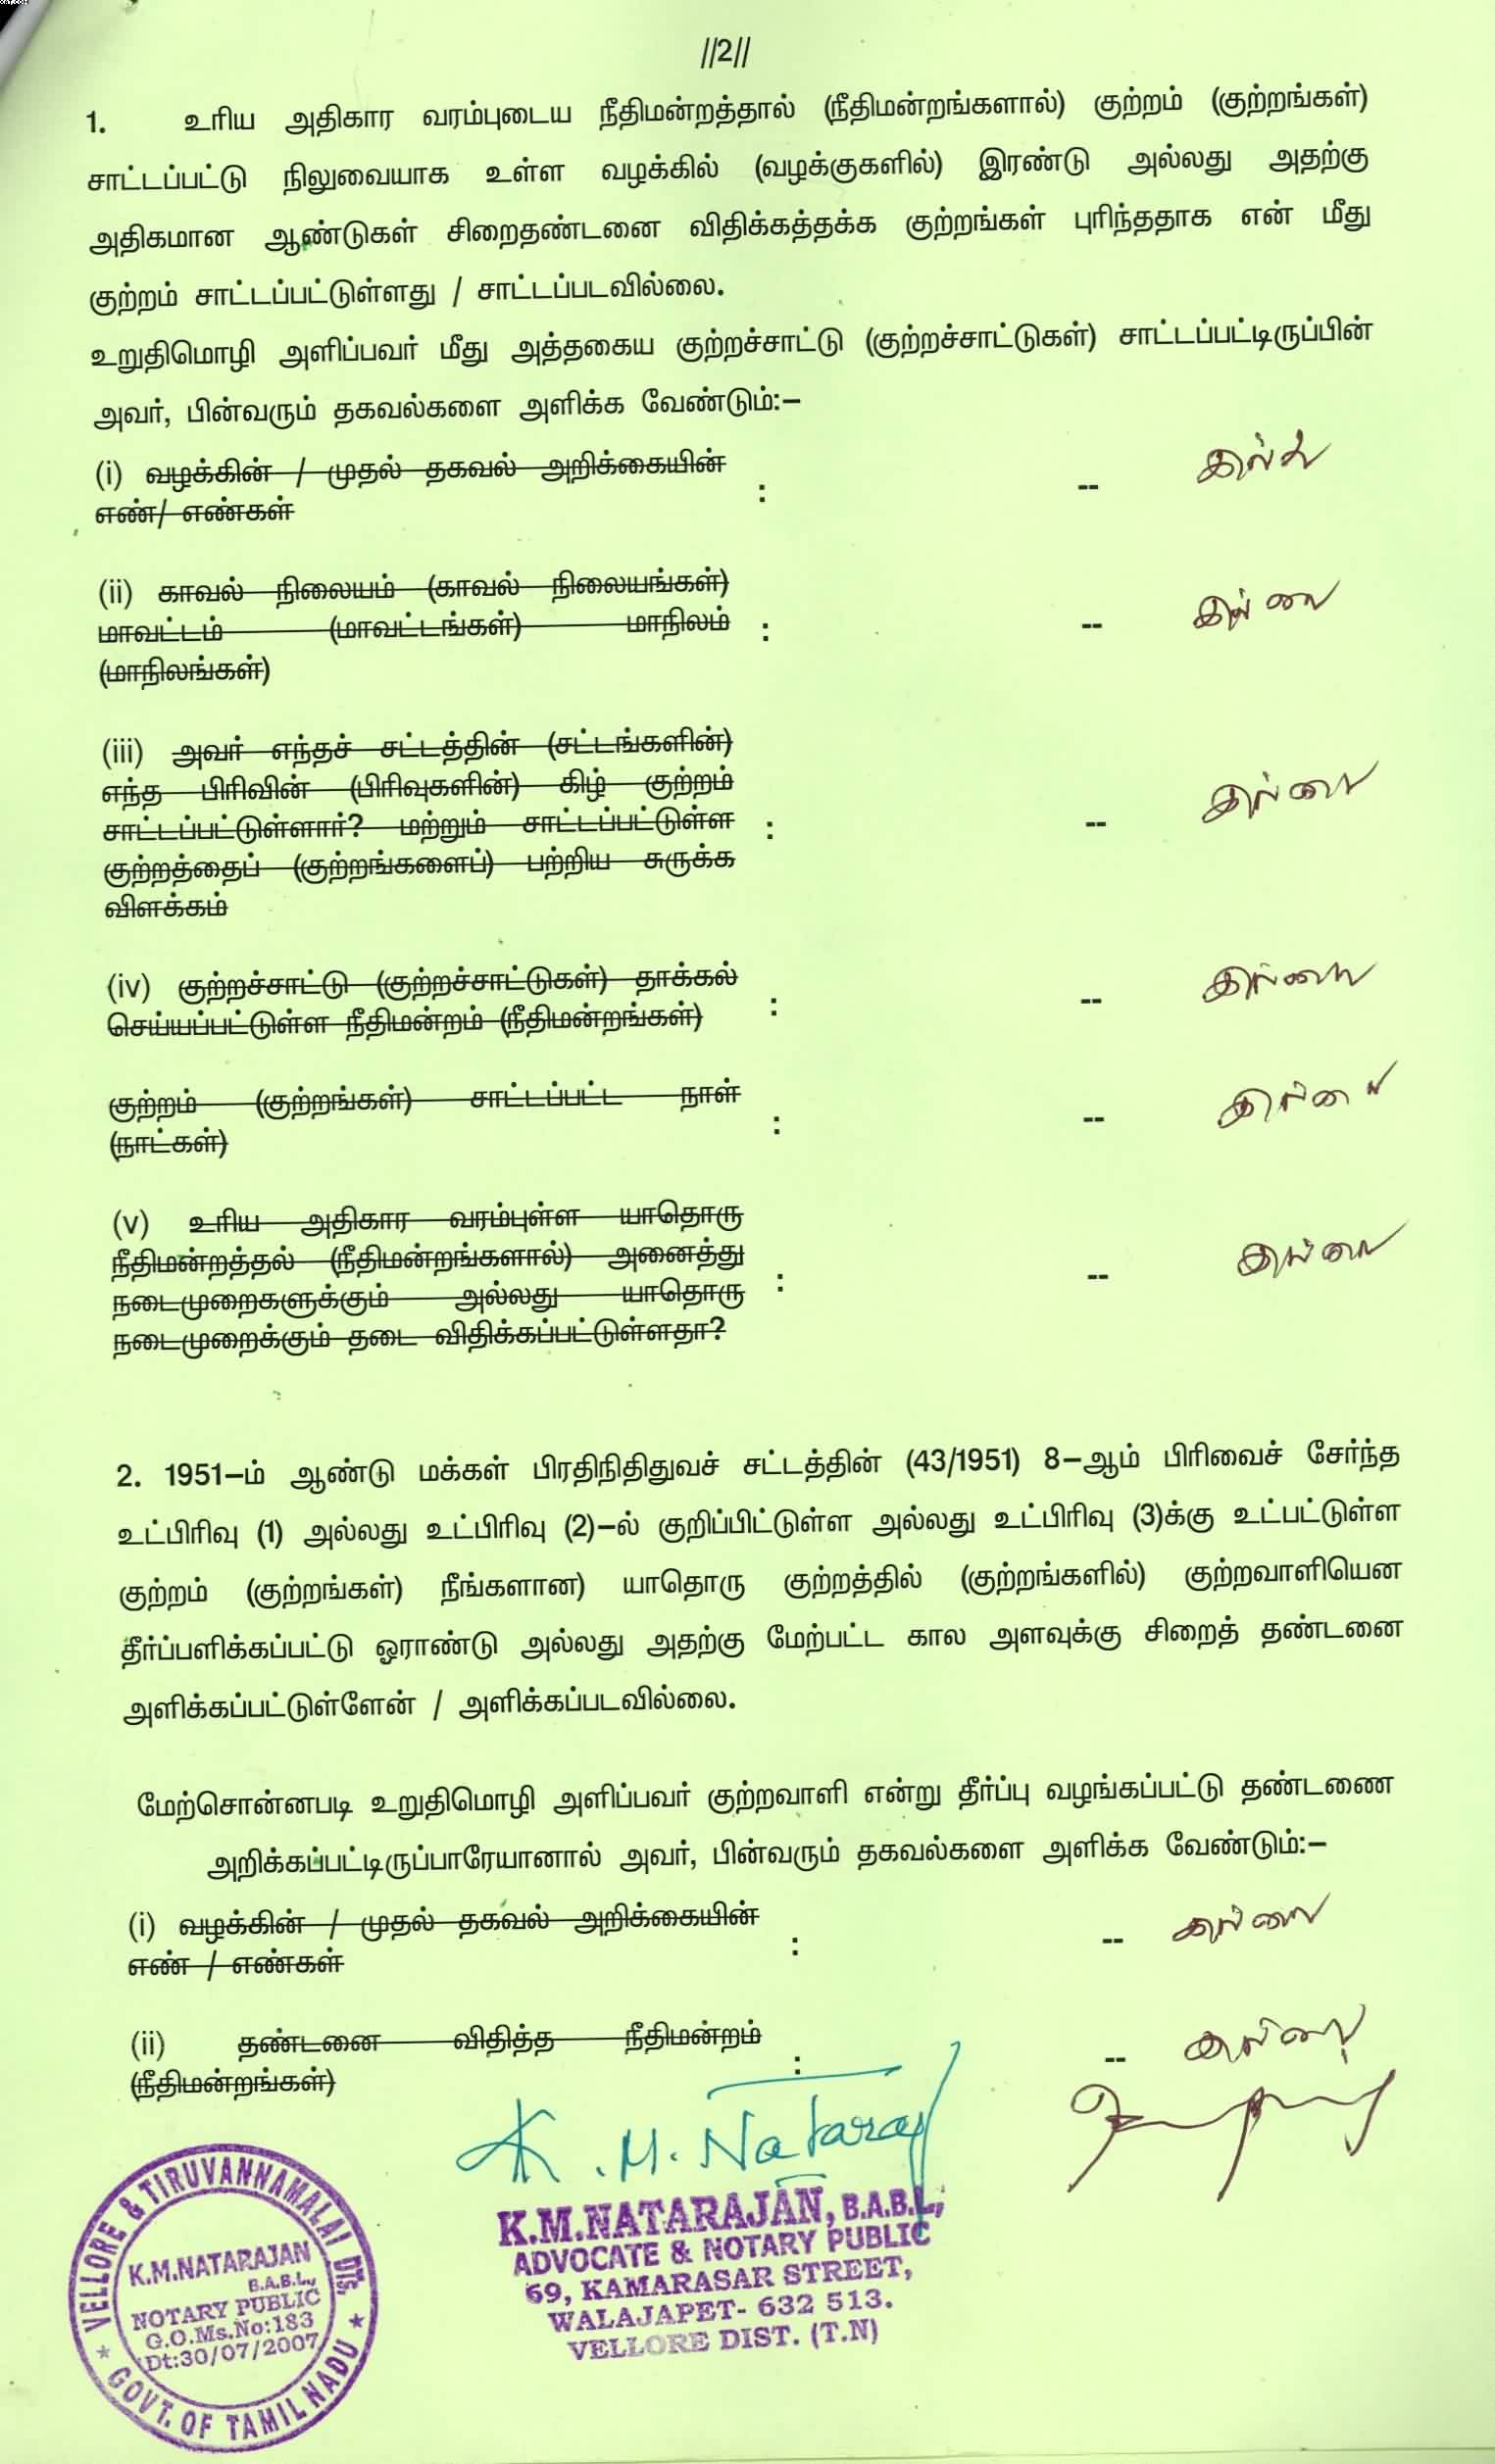 //2//
1. உரிய அதிகார வரம்புடைய நீதிமன்றத்தால் (நீதிமன்றங்களால்) குற்றம் (குற்றங்கள்)
சாட்டப்பட்டு நிலுவையாக உள்ள வழக்கில் (வழக்குகளில்) இரண்டு அல்லது அதற்கு
அதிகமான ஆண்டுகள் சிறைதண்டனை விதிக்கத்தக்க குற்றங்கள் புரிந்ததாக என் மீது
குற்றம் சாட்டப்பட்டுள்ளது / சாட்டப்படவில்லை.
உறுதிமொழி அளிப்பவர் மீது அத்தகைய குற்றச்சாட்டு (குற்றச்சாட்டுகள்) சாட்டப்பட்டிருப்பின்
அவர், பின்வரும் தகவல்களை அளிக்க வேண்டும்:–
(i) வழக்கின் / முதல் தகவல் அறிக்கையின்
எண்/ எண்கள் : -- இல்லை
(ii) காவல் நிலையம் (காவல் நிலையங்கள்)
மாவட்டம் (மாவட்டங்கள்) மாநிலம் : -- இல்லை
(மாநிலங்கள்)
(iii) அவர் எந்தச் சட்டத்தின் (சட்டங்களின்)
எந்த பிரிவின் (பிரிவுகளின்) கிழ் குற்றம்
சாட்டப்பட்டுள்ளார்? மற்றும் சாட்டப்பட்டுள்ள : -- இல்லை
குற்றத்தைப் (குற்றங்களைப்) பற்றிய சுருக்க
விளக்கம்
(iv) குற்றச்சாட்டு (குற்றச்சாட்டுகள்) தாக்கல்
செய்யப்பட்டுள்ள நீதிமன்றம் (நீதிமன்றங்கள்) : -- இல்லை
குற்றம் (குற்றங்கள்) சாட்டப்பட்ட நாள்
(நாட்கள்) : -- இல்லை
(v) உரிய அதிகார வரம்புள்ள யாதொரு
நீதிமன்றத்தல் (நீதிமன்றங்களால்) அனைத்து
நடைமுறைகளுக்கும் அல்லது யாதொரு : -- இல்லை
நடைமுறைக்கும் தடை விதிக்கப்பட்டுள்ளதா?
2. 1951–ம் ஆண்டு மக்கள் பிரதிநிதிதுவச் சட்டத்தின் (43/1951) 8–ஆம் பிரிவைச் சேர்ந்த
உட்பிரிவு (1) அல்லது உட்பிரிவு (2)–ல் குறிப்பிட்டுள்ள அல்லது உட்பிரிவு (3)க்கு உட்பட்டுள்ள
குற்றம் (குற்றங்கள்) நீங்களான) யாதொரு குற்றத்தில் (குற்றங்களில்) குற்றவாளியென
தீர்ப்பளிக்கப்பட்டு ஓராண்டு அல்லது அதற்கு மேற்பட்ட கால அளவுக்கு சிறைத் தண்டனை
அளிக்கப்பட்டுள்ளேன் / அளிக்கப்படவில்லை.
மேற்சொன்னபடி உறுதிமொழி அளிப்பவர் குற்றவாளி என்று தீர்ப்பு வழங்கப்பட்டு தண்டணை
அறிக்கப்பட்டிருப்பாரேயானால் அவர், பின்வரும் தகவல்களை அளிக்க வேண்டும்:–
(i) வழக்கின் / முதல் தகவல் அறிக்கையின்
எண் / எண்கள் : -- இல்லை
(ii) தண்டனை விதித்த நீதிமன்றம்
(நீதிமன்றங்கள்) : -- இல்லை
K.M.Nataraj
K.M.NATARAJAN, B.A.B.L.,
ADVOCATE & NOTARY PUBLIC
69, KAMARASAR STREET,
WALAJAPET- 632 513.
VELLORE DIST. (T.N)
VELLORE & TIRUVANNAMALAI DTS.
K.M.NATARAJAN
B.A.B.L.,
NOTARY PUBLIC
G.O.Ms.No:183
Dt:30/07/2007
GOVT. OF TAMIL NADU